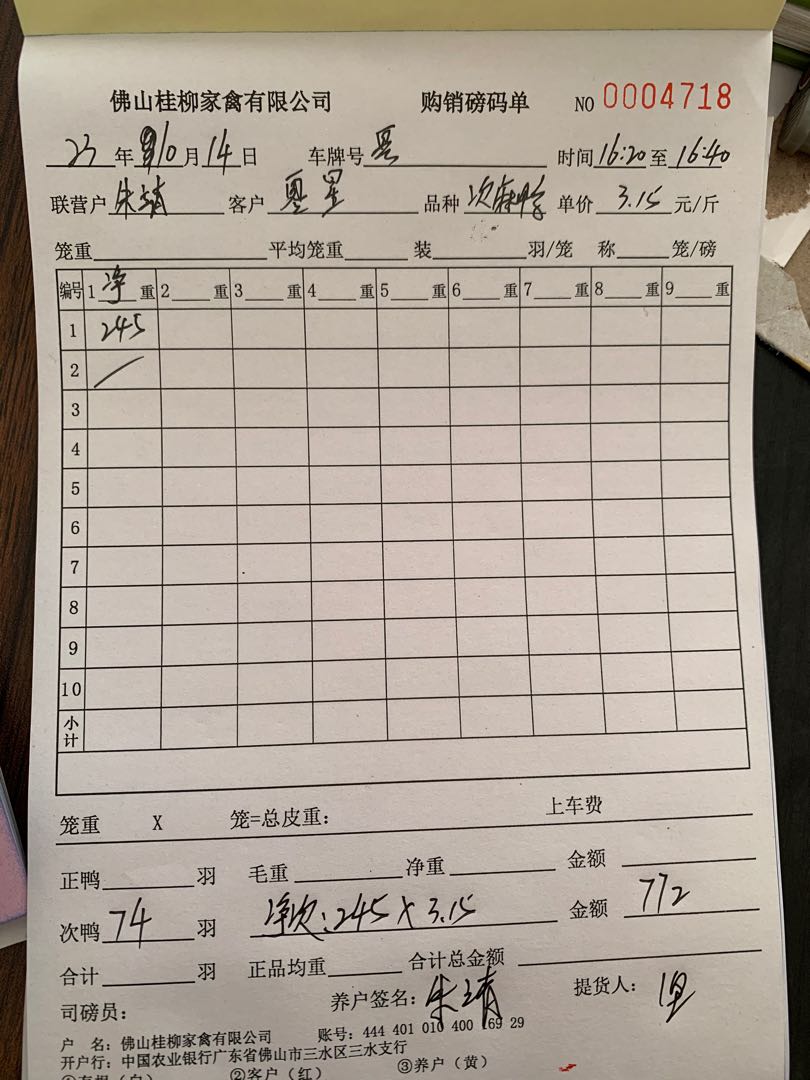 佛山桂柳家禽有限公司 购销磅码单 NO 0004718
23 年 10 月 14 日 车牌号 时间 16:20 至 16:40
联营户 朱靖 客户 星 品种 次 单价 3.15 元/斤
笼重 平均笼重 装 羽/笼 称 笼/磅
编号 1 净 重 2 重 3 重 4 重 5 重 6 重 7 重 8 重 9 重
1 245
2
3
4
5
6
7
8
9
10
小计
笼重 X 笼=总皮重： 上车费
正鸭 羽 毛重 净重 金额
次鸭 74 羽 净次：245 X 3.15 金额 772
合计 羽 正品均重 合计总金额
司磅员： 养户签名： 朱靖 提货人：
户 名：佛山桂柳家禽有限公司 账号：444 401 010 400 169 29
开户行：中国农业银行广东省佛山市三水区三水支行
①存根（白） ②客户（红） ③养户（黄）